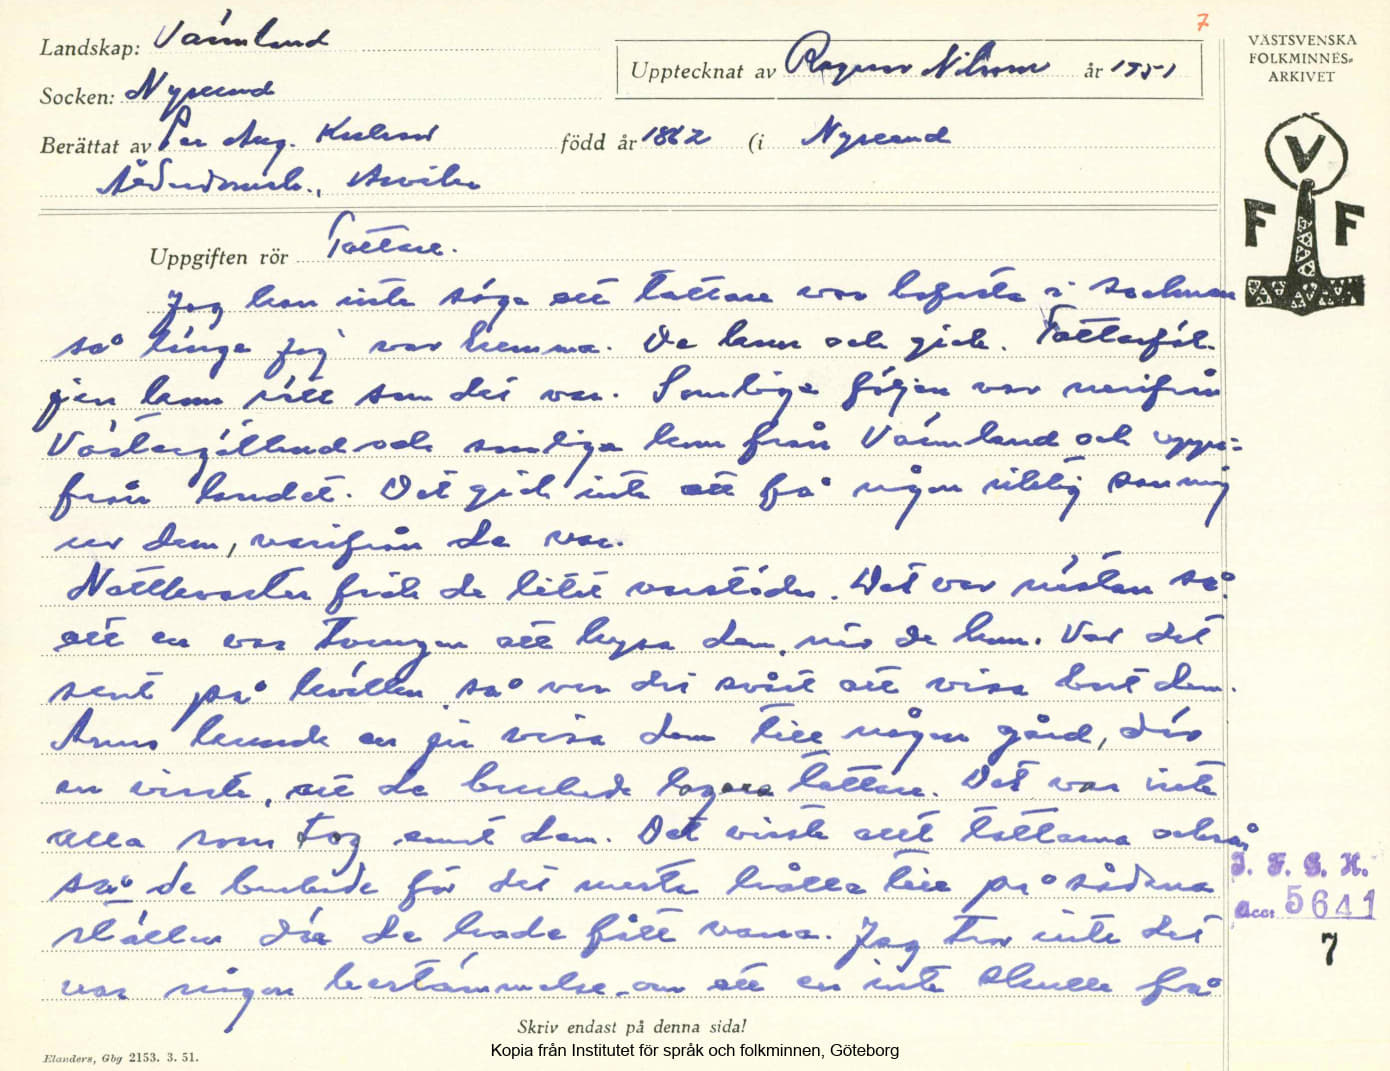 7
Landskap: Värmland
Upptecknat av Ragnar Nilsson år 1951
VÄSTSVENSKA
FOLKMINNES-
ARKIVET
Socken: Nysund
Berättat av Per Aug. född år 1862 (i Nysund
Arvika
V F F
Uppgiften rör Tattare.
Jag kan inte säga att tattare var bofasta i socknen
så länge jag var hemma. De kom och gick. Tattarföl-
jen kom rätt som det var. Somliga följen var nerifrån
Västergötland och somliga kom från Värmland och uppi-
från landet. Det gick inte att få någon riktig sanning
ur dem, varifrån de var.
Nattkvarter fick de litet varstädes. Det var nästan så
att en var tvungen att hysa dem, när de kom. Var det
sent på kvällen så var det svårt att visa bort dem.
Annars kunde en ju visa dem till någon gård, där
en visste, att de brukade logera tattare. Det var inte
alla som tog emot dem. Det visste allt tattarna också,
så de brukade för det mesta hålla till på sådana
ställen där de hade fått vara. Jag tror inte det
var någon bestämmelse om att en inte skulle få
I. F. G. H.
Acc. 5641
7
Skriv endast på denna sida!
Elanders, Gbg 2153. 3. 51.
Kopia från Institutet för språk och folkminnen, Göteborg